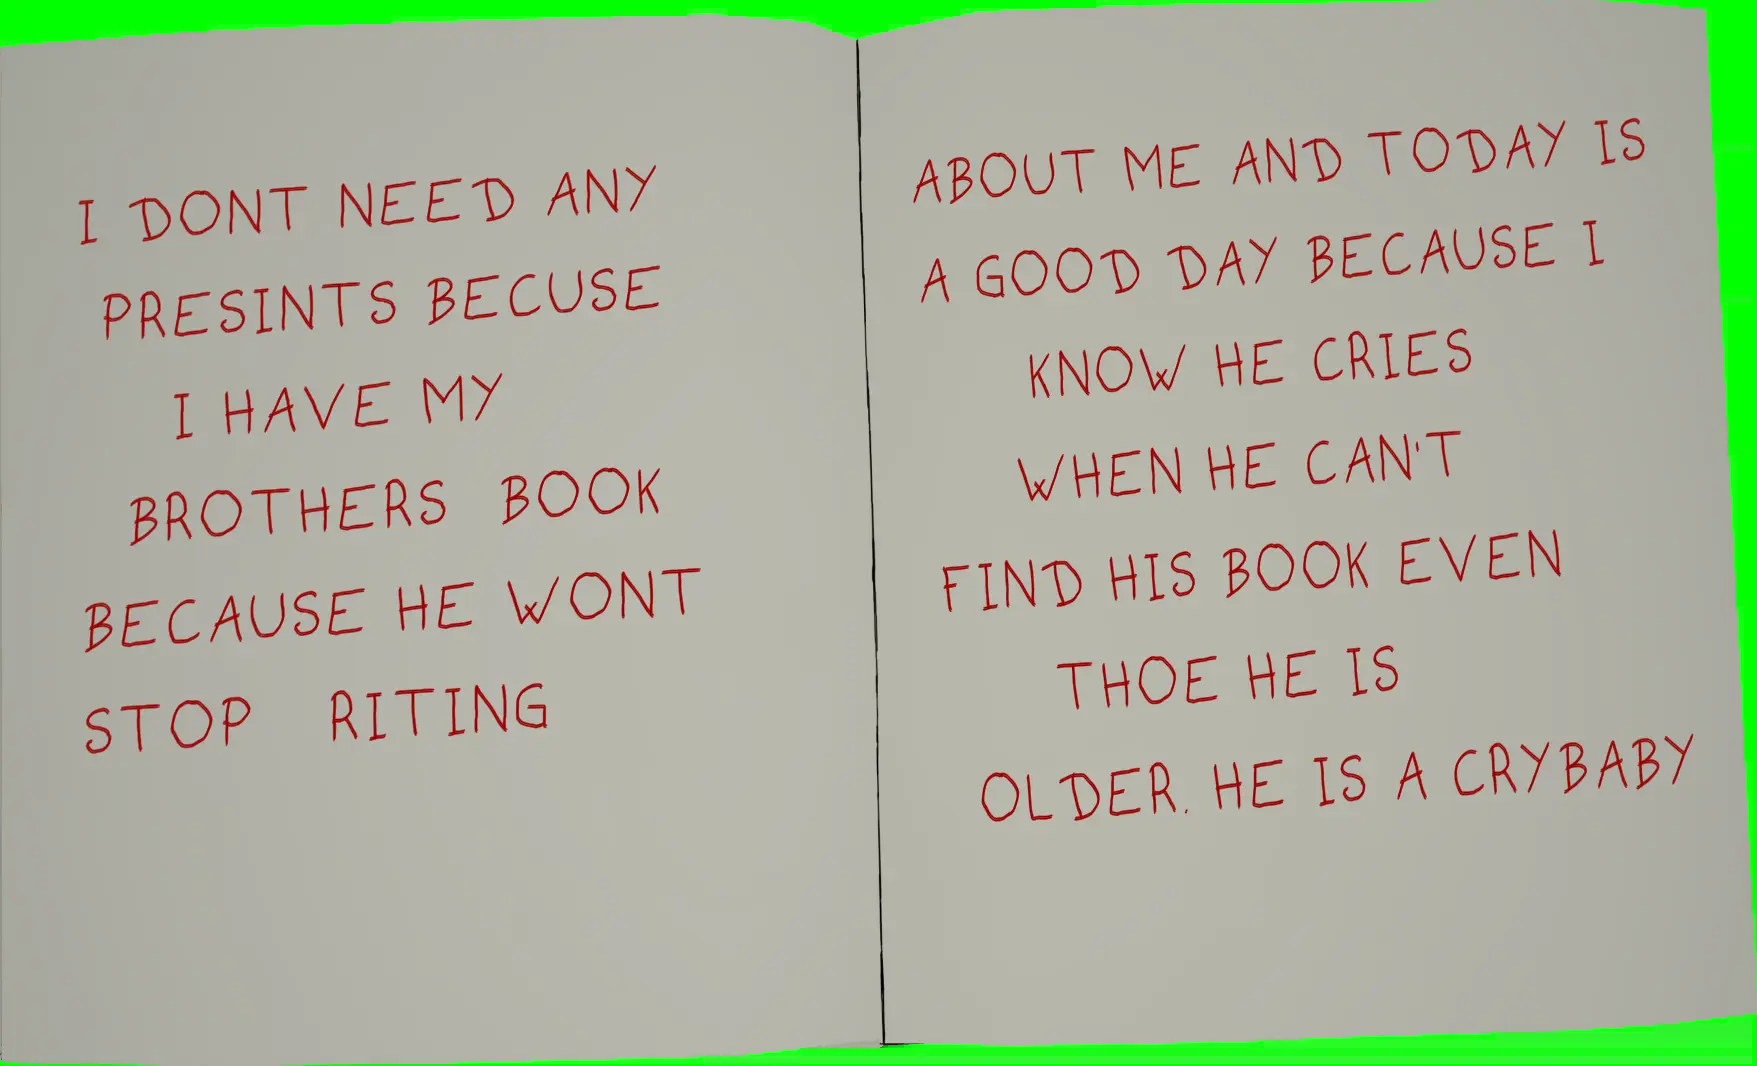 I DONT NEED ANY
PRESINTS BECUSE
I HAVE MY
BROTHERS BOOK
BECAUSE HE WONT
STOP RITING
ABOUT ME AND TODAY IS
A GOOD DAY BECAUSE I
KNOW HE CRIES
WHEN HE CAN'T
FIND HIS BOOK EVEN
THOE HE IS
OLDER. HE IS A CRYBABY